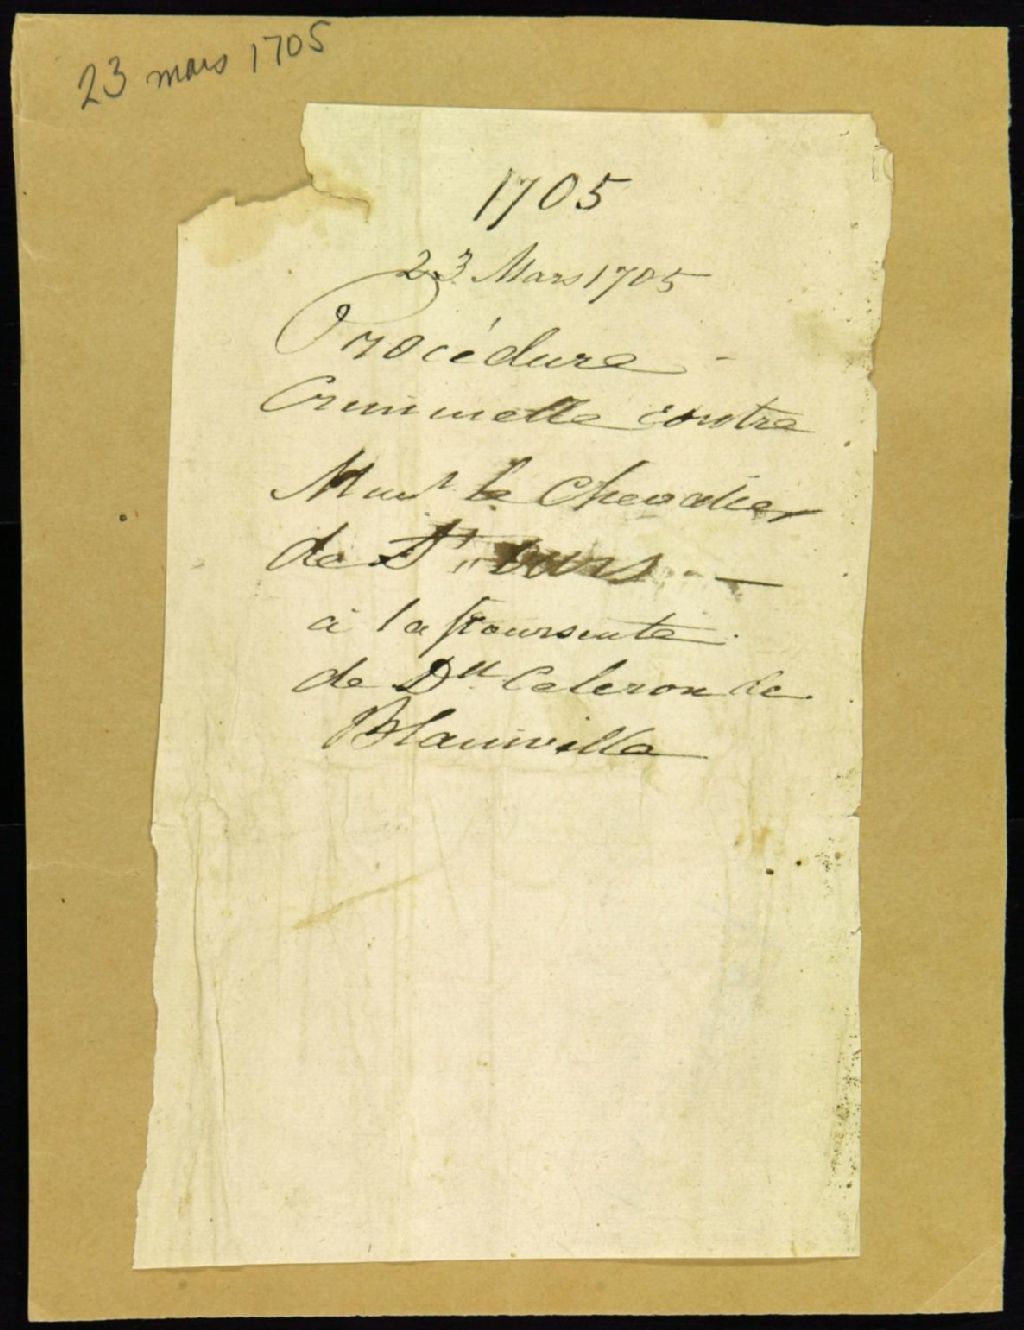 23 mars 1705
1705
23 Mars 1705
Procédure
Criminelle contre
le Chevalier
de St Ours
à la poursuite
de Dlle Celeron de
Blainville